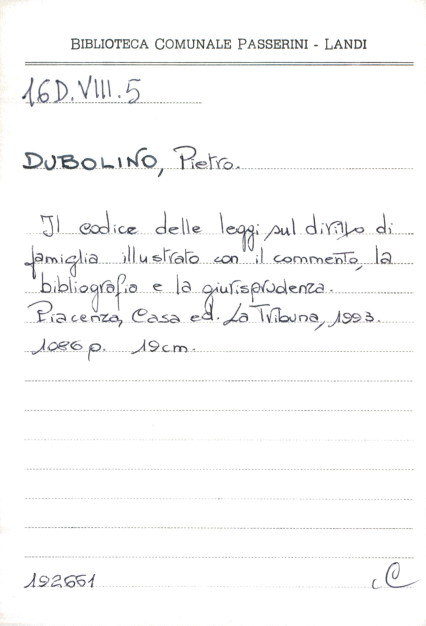 BIBLIOTECA COMUNALE PASSERINI - LANDI
16D.VIII.5
DUBOLINO, Pietro.
Il codice delle leggi sul diritto di
famiglia illustrato con il commento, la
bibliografia e la giurisprudenza.
Piacenza, Casa ed. La Tribuna, 1993.
1086 p. 19cm.
192661 C